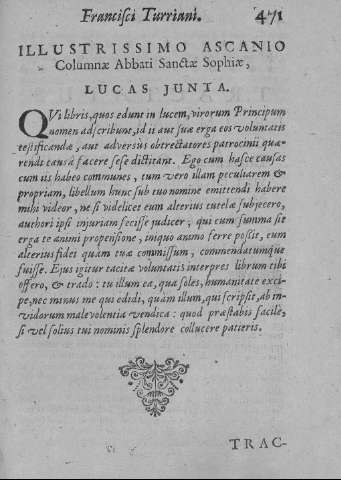 Francisci Turriani. 471
ILLUSTRISSIMO ASCANIO
Columnæ Abbati Sanctæ Sophiæ,
LUCAS JUNTA.
QVi libris, quos edunt in lucem, virorum Principum
nomen adscribunt, id ii aut suæ erga eos voluntatis
testificandæ, aut adversùs obtrectatores patrocinii quæ-
rendi causâ facere sese dictitant. Ego cum hasce causas
cum iis habeo communes, tum vero illam peculiarem &
propriam, libellum hunc sub tuo nomine emittendi habere
mihi videor, ne si videlicet eum alterius tutelæ subjecero,
authori ipsi injuriam fecisse judicer, qui cum summa sit
erga te animi propensione, iniquo animo ferre possit, eum
alterius fidei quàm tuæ commissum, commendatumque
fuisse. Ejus igitur tacitæ voluntatis interpres librum tibi
offero, & trado: tu illum ea, qua soles, humanitate exci-
pe, nec minus me qui edidi, quàm illum, qui scripsit, ab in-
vidorum malevolentia vendica: quod præstabis facilè,
si vel solius tui nominis splendore collucere patieris.
TRAC-